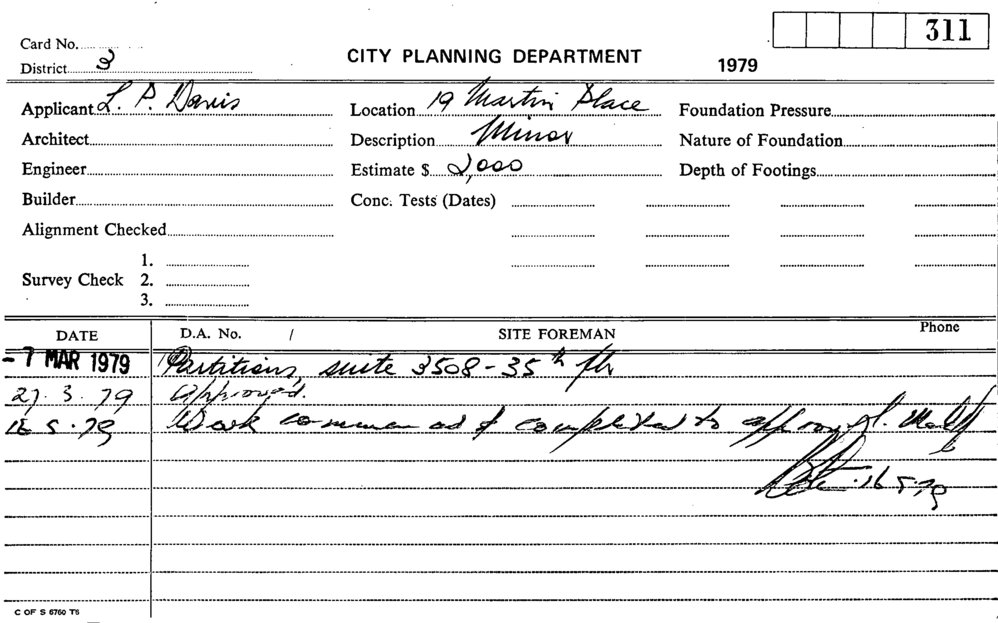 311
Card No.
CITY PLANNING DEPARTMENT 1979
District 3
Applicant L. P. Davis Location 19 Martin Place Foundation Pressure
Architect Description Minor Nature of Foundation
Engineer Estimate $ 2,000 Depth of Footings
Builder Conc. Tests (Dates)
Alignment Checked
1.
Survey Check 2.
3.
DATE D.A. No. / SITE FOREMAN Phone
-7 MAR 1979 Partitions, suite 3508-35th flr
27.3.79 Approved.
16 5.79 Work commenced & completed to approval.
16 5.79
C OF S 6760 T6